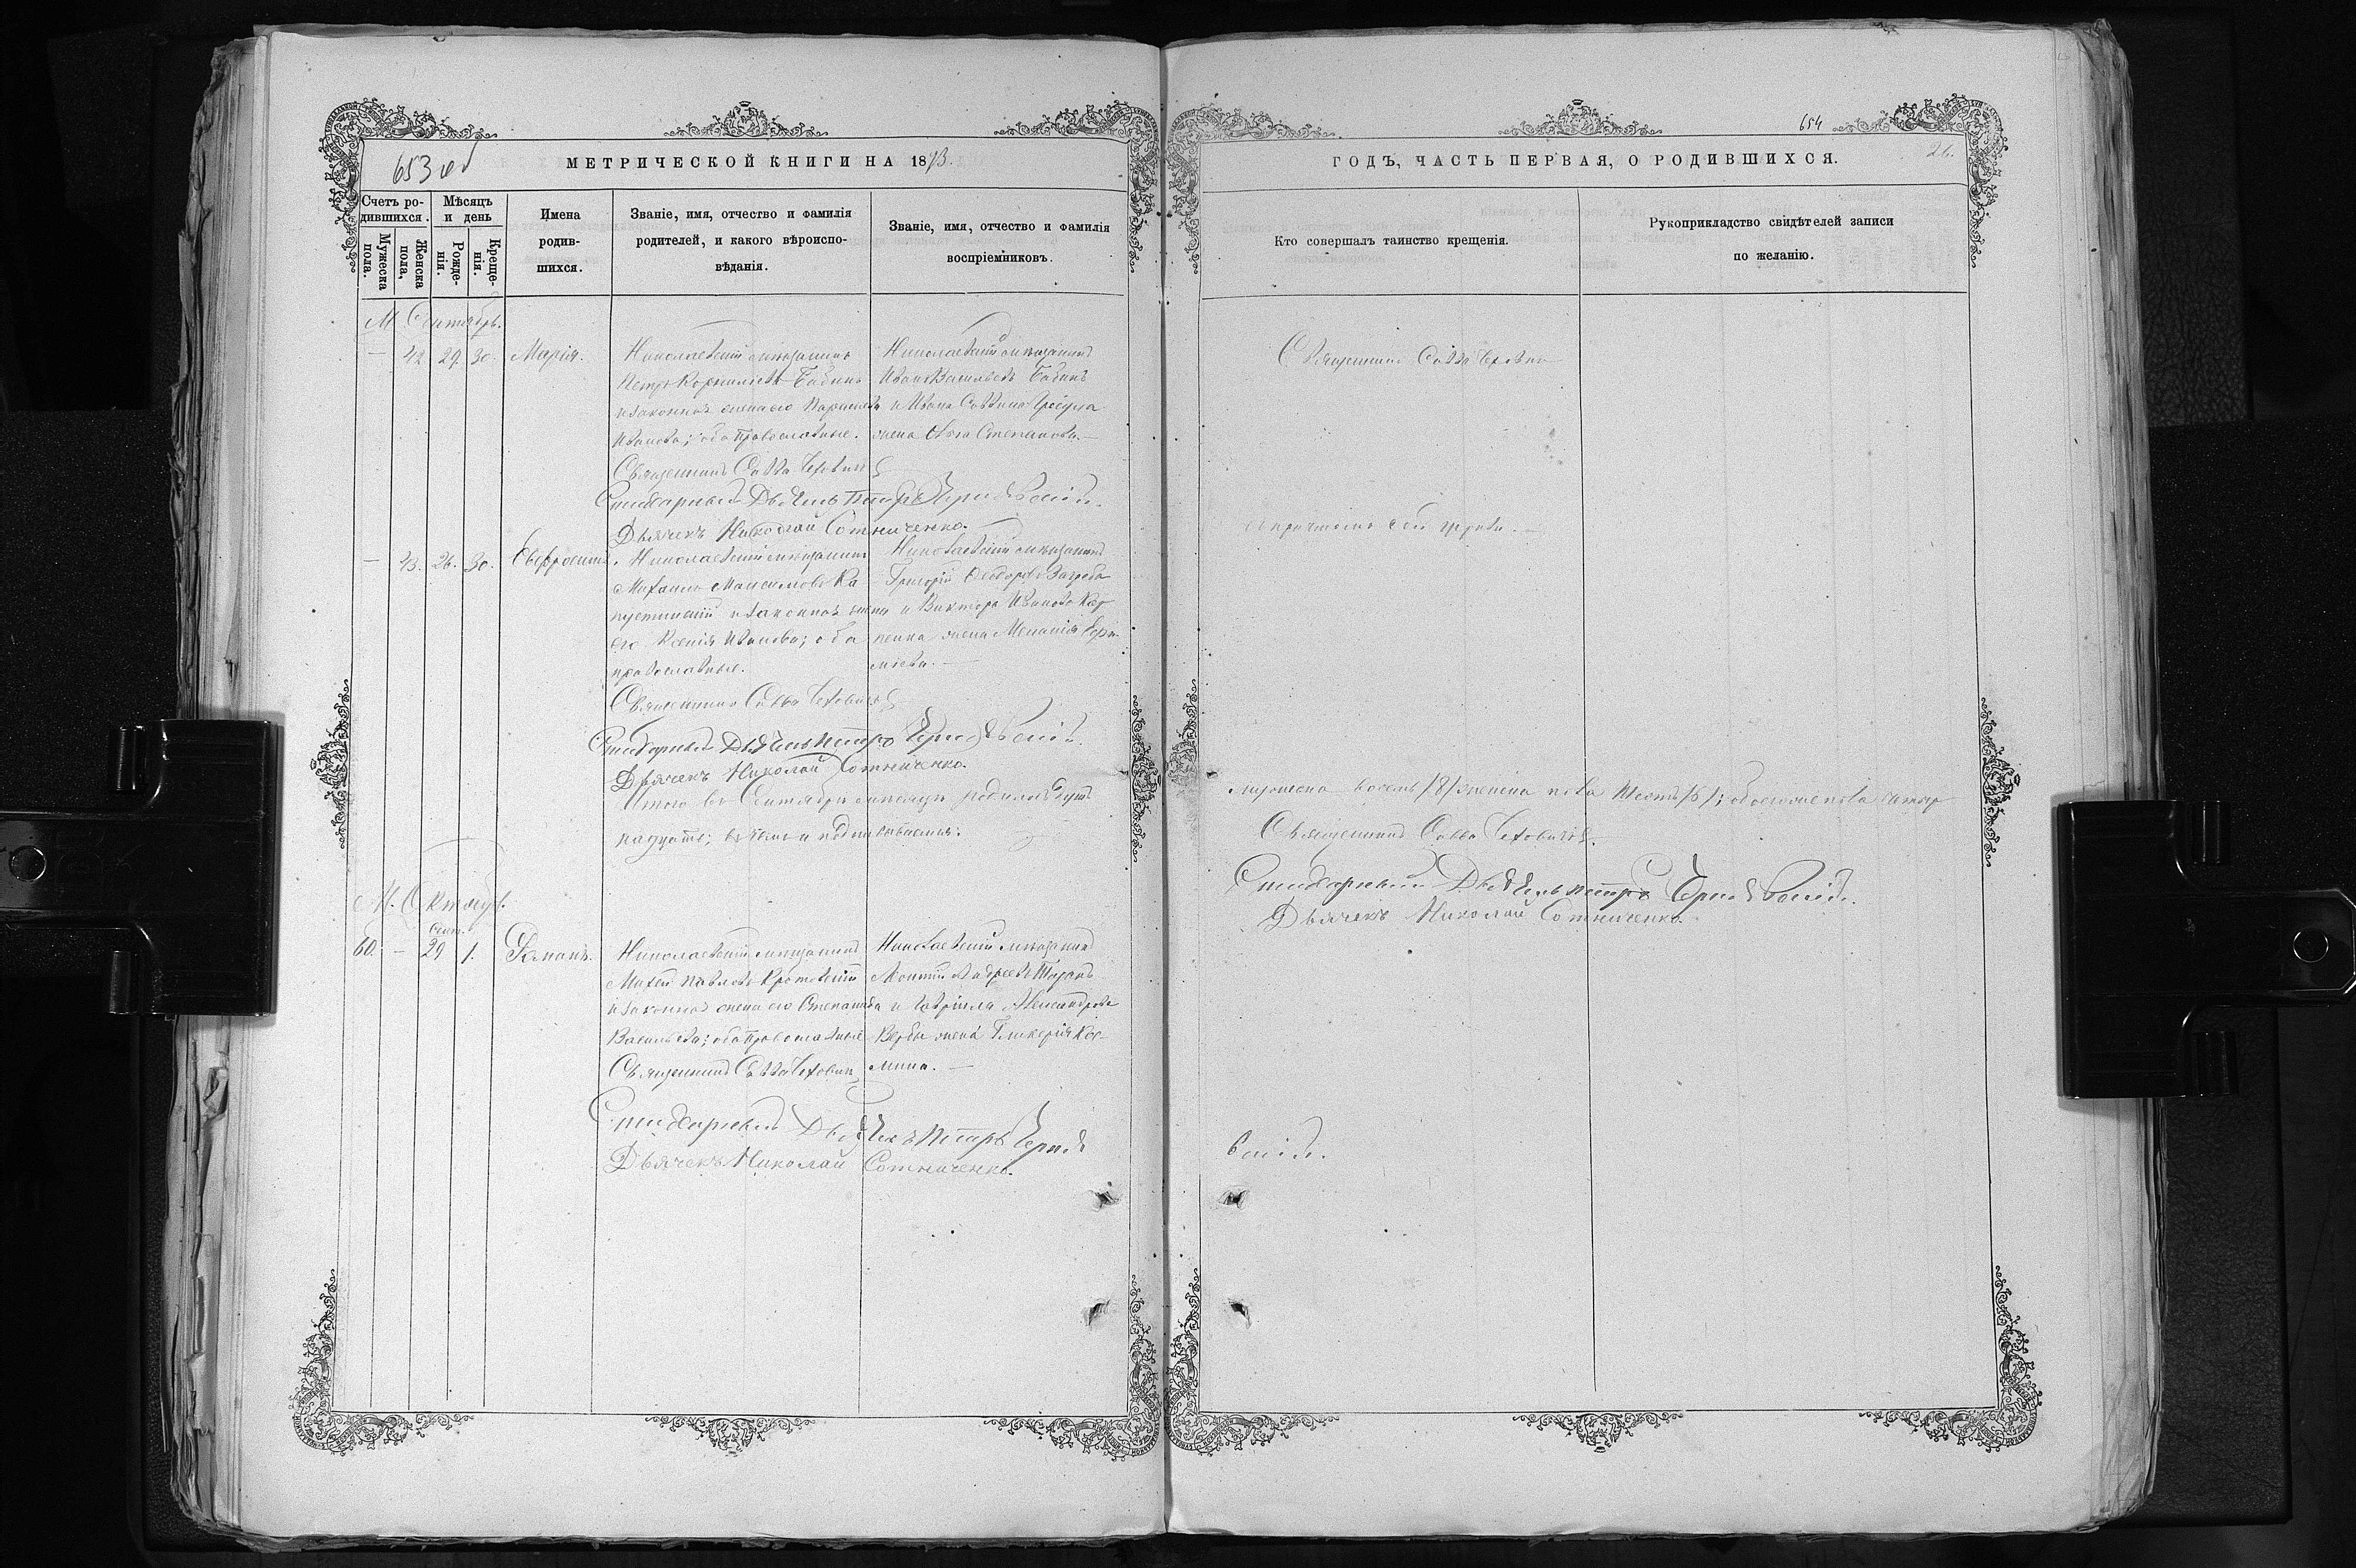 653 об
МЕТРИЧЕСКОЙ КНИГИ НА 1873.
Счетъ родившихся.
Мужеска пола.
Женска пола.
Мѣсяцъ и день
Рожденія.
Крещенія.
Имена родившихся.
Званіе, имя, отчество и фамилія родителей, и какого вѣроисповѣданія.
Званіе, имя, отчество и фамилія воспріемниковъ.
М Сентябрь.
— 42 29. 30. Марія.
Николаевскій мѣщанинъ
Петръ Корниліевъ Бабинъ
и законная жена его Параскева
Иванова; оба православные.
Николаевскій мѣщанинъ
Иванъ Васильевъ Бабинъ
и Ивана Саввина
жена Степанова. —
Священникъ Савва Чехович
Стихарный Дьячекъ Петръ
Дьячекъ Николай Сотниченко.
— 43. 26. 30. Евфросинія.
Николаевскій мѣщанинъ
Михаилъ Максимовъ Ка
пустинскій и законная жена
его Ксенія Иванова; оба
православные.
Николаевскій мѣщанинъ
Григорій Ѳеодоровъ Загреба
и Виктора Иванова Кар
пенка жена Меланія Корн
иліева. —
Священникъ Савва Чехович
Стихарный Дьячекъ Петръ
Дьячекъ Николай Сотниченко.
Итого въ Сентябрѣ мѣсяцѣ родилось
надцать; въ чемъ и подписываемся:
М. Октябрь.
Сент.
60. — 29 1. Романъ.
Николаевскій мѣщанинъ
Михей Павловъ Кротовскій
и законная жена его Степанида
Васильева; оба православные
Николаевскій мѣщанинъ
Андреевъ
и Гавріила Александрова
Вербы жена Гликерія Кос-
мина. —
Священникъ Савва Чехович
Стихарный Дьячекъ Петръ
Дьячекъ Николай Сотниченко.
654
26.
ГОДЪ, ЧАСТЬ ПЕРВАЯ, О РОДИВШИХСЯ.
Кто совершалъ таинство крещенія.
Рукоприкладство свидѣтелей записи по желанію.
Священникъ Савва Чехович
съ причтомъ сей церкви. —
мужеска восемь /8/ женска пола шесть /6/; обоего пола
Священникъ Савва Чехович
Стихарный Дьячекъ Петръ
Дьячекъ Николай Сотниченко.